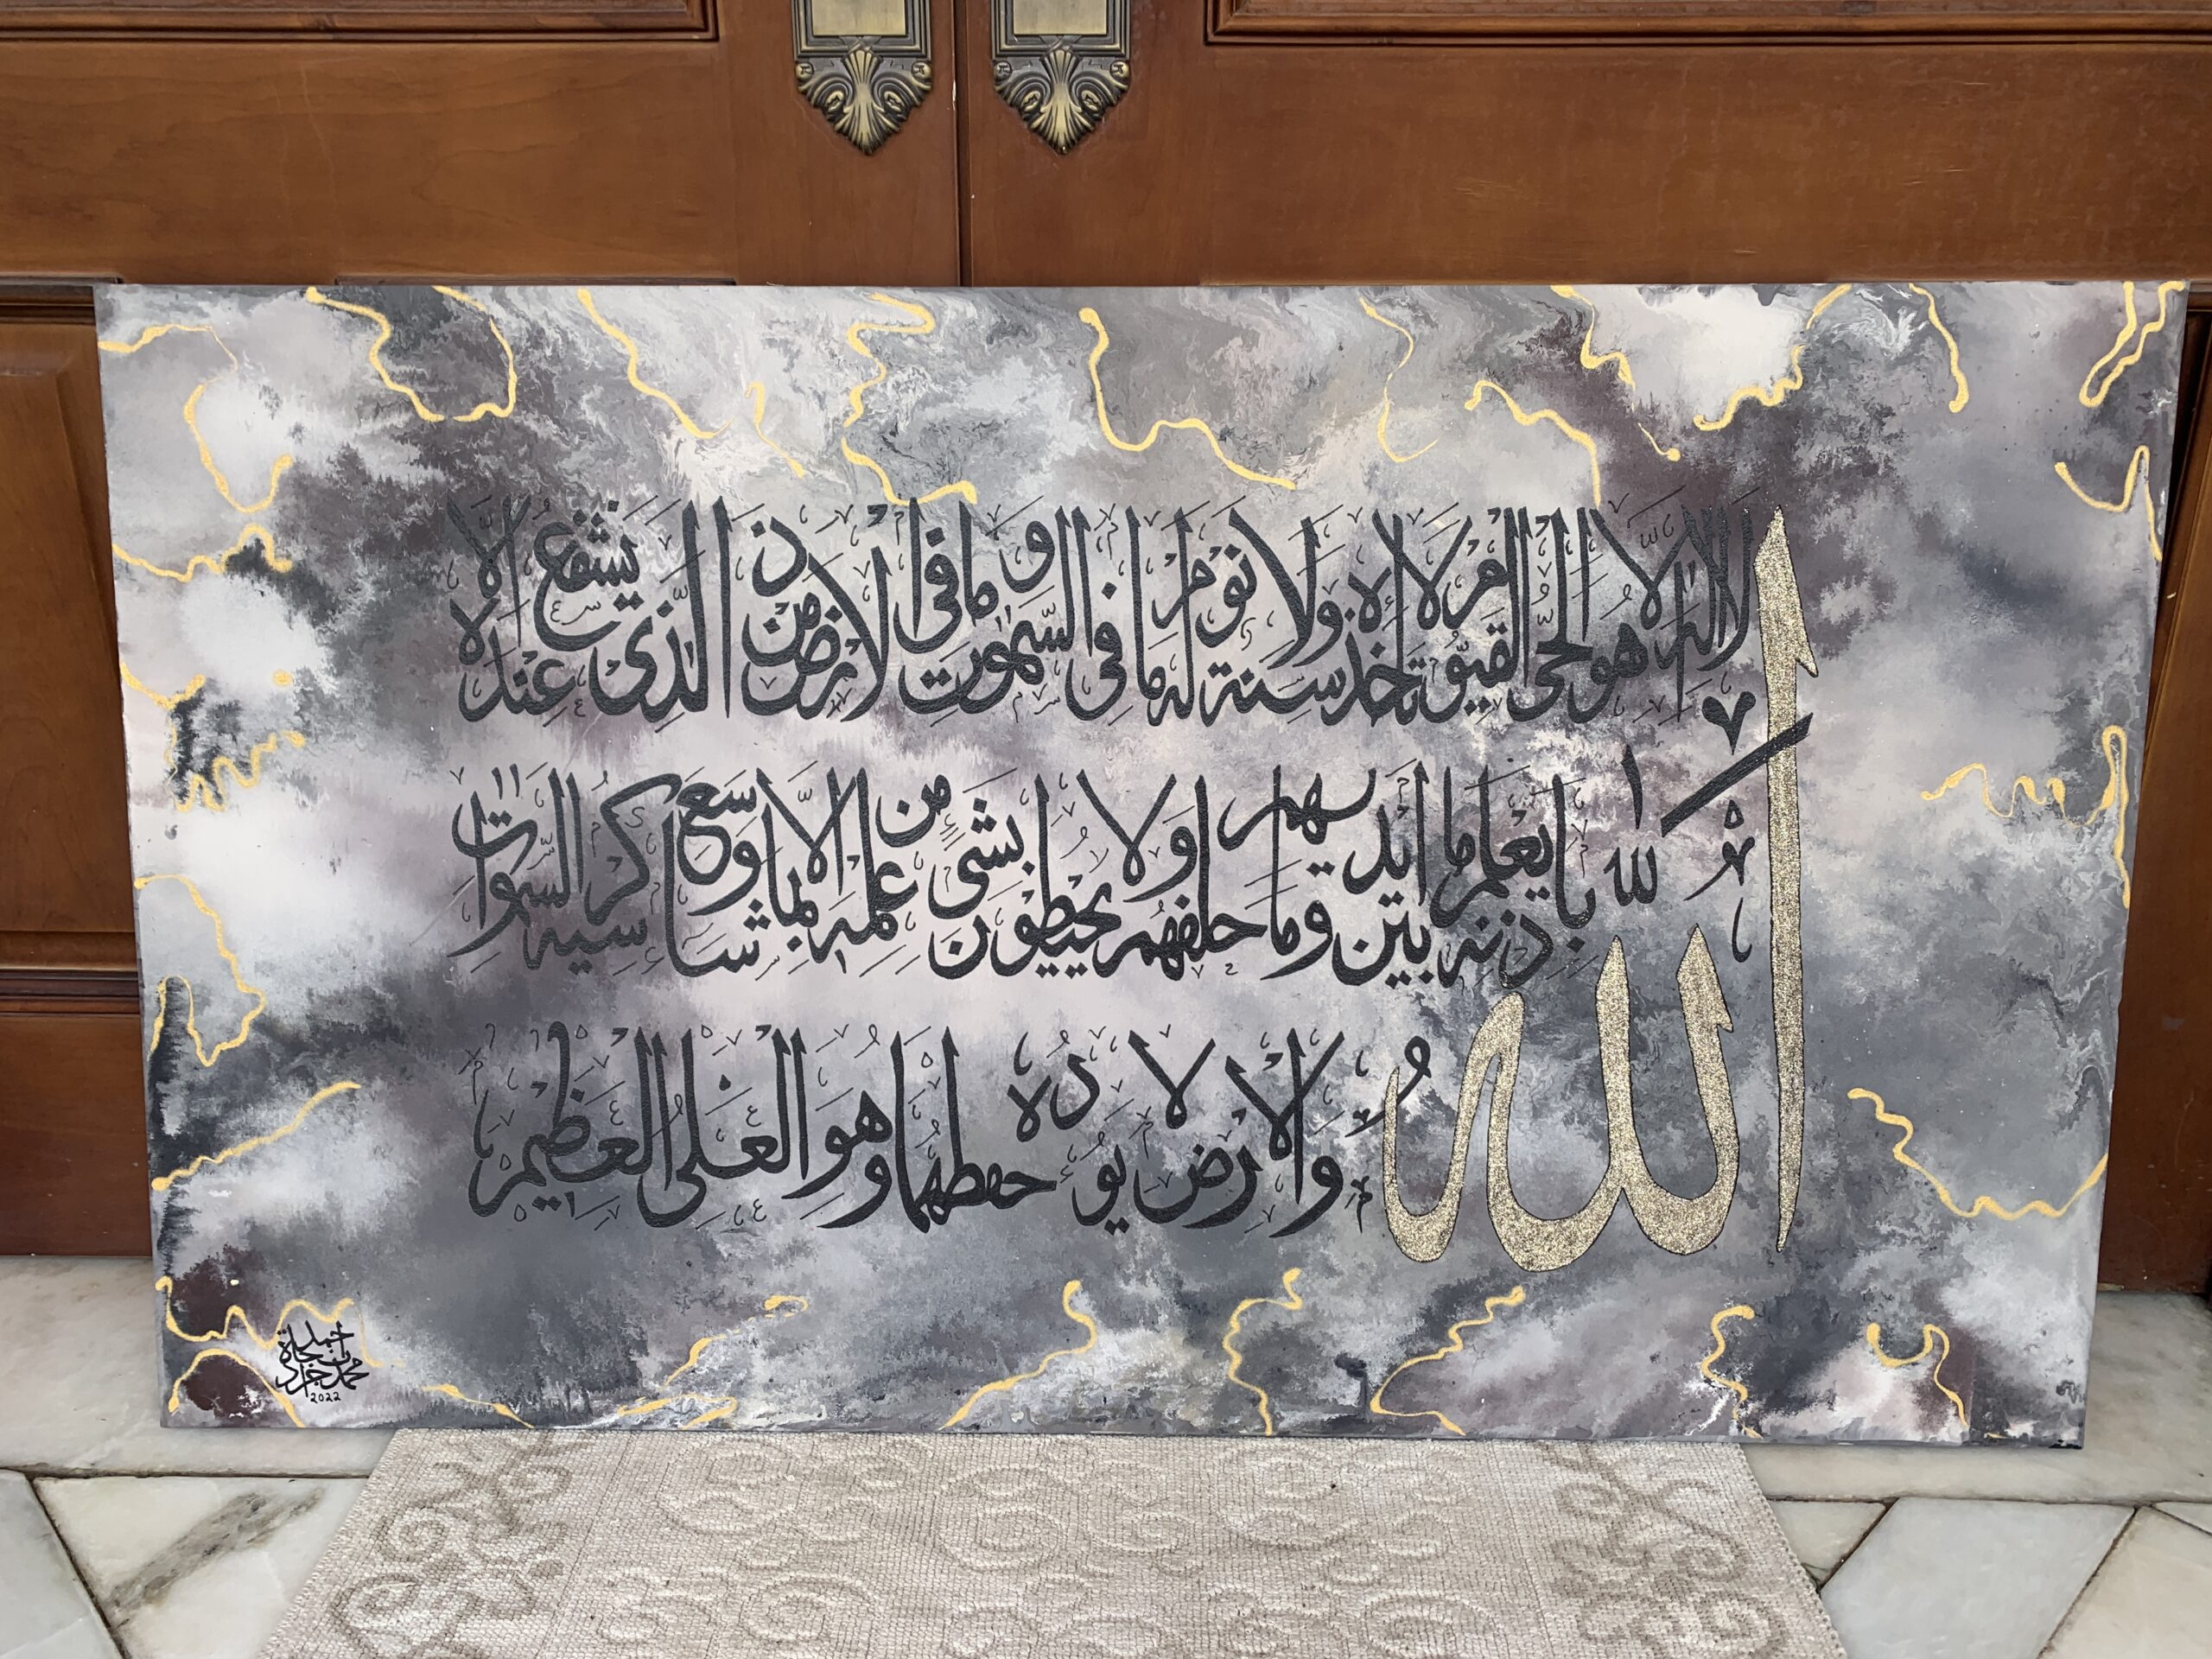 الله لا اله الا هو الحي القيوم لا تاخذه سنة ولا نوم له ما في السموت وما في الارض من ذا الذي يشفع عنده الا
باذنه يعلم ما بين ايديهم وما خلفهم ولا يحيطون بشيء من علمه الا بما شاء وسع كرسيه السموات
والارض ولا يؤده حفظهما وهو العلي العظيم
لله
محمد
2022